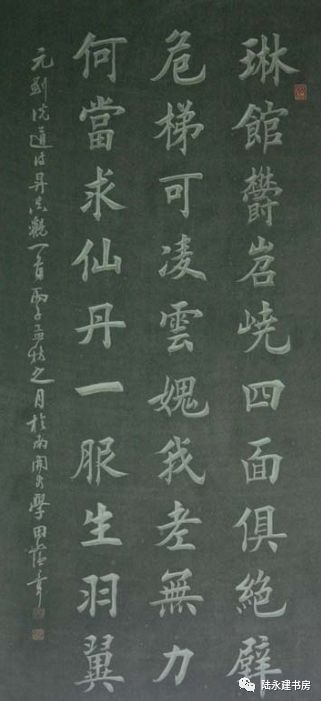 琳館欝岧嶢四面俱絶壁
危梯可凌雲媿我老無力
何當求仙丹一服生羽翼
元劉說道詩昇真觀一首丙子孟秋之月於南開大學田蘊章
陆永建书房